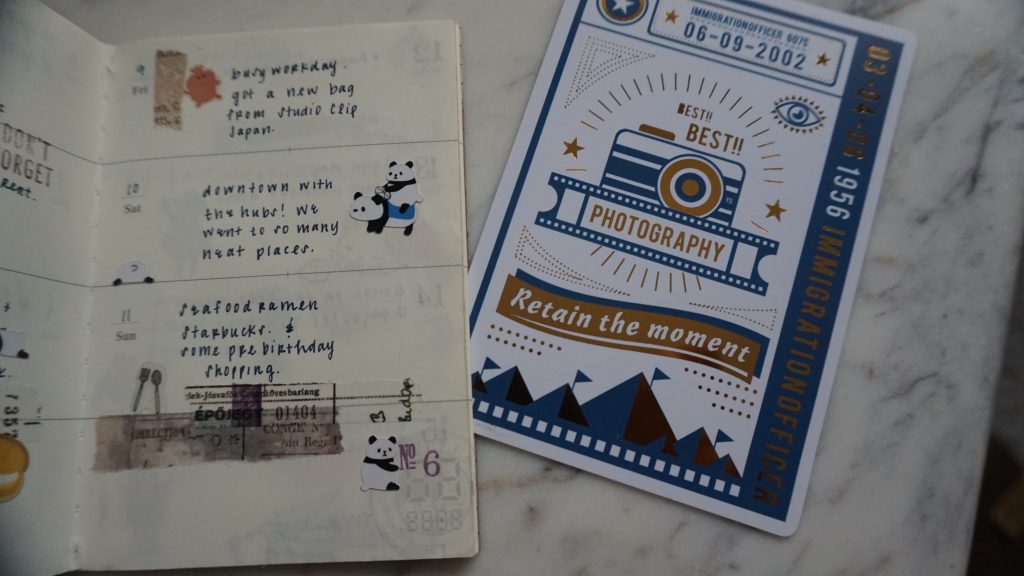 DON'T
FORGET
Rent.
9
Fri
busy workday.
got a new bag
from Studio Clip
Japan.
10
Sat
downtown with
the hubs! We
went to so many
neat places.
11
Sun
seafood ramen
starbucks. &
some pre birthday
shopping.
01404
DIRECTIO
CONGE
No 6
IMMIGRATIONOFFICER 6076
06-09-2002
BEST!!
BEST!!
PHOTOGRAPHY
Retain the moment
03-04-06 1956 IMMIGRATIONOFFICER